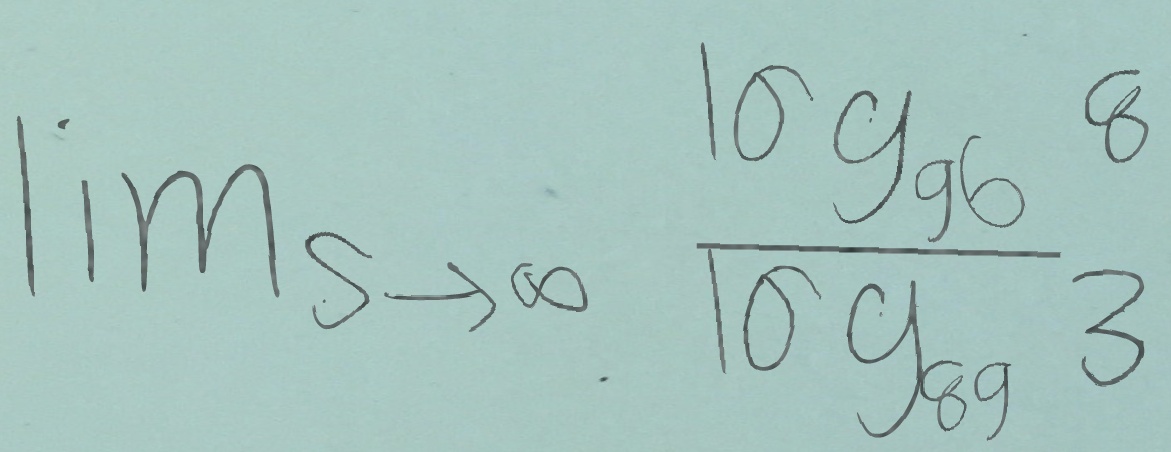 \lim_{s \to \infty} \frac{\log_{96} 8}{\log_{89} 3}